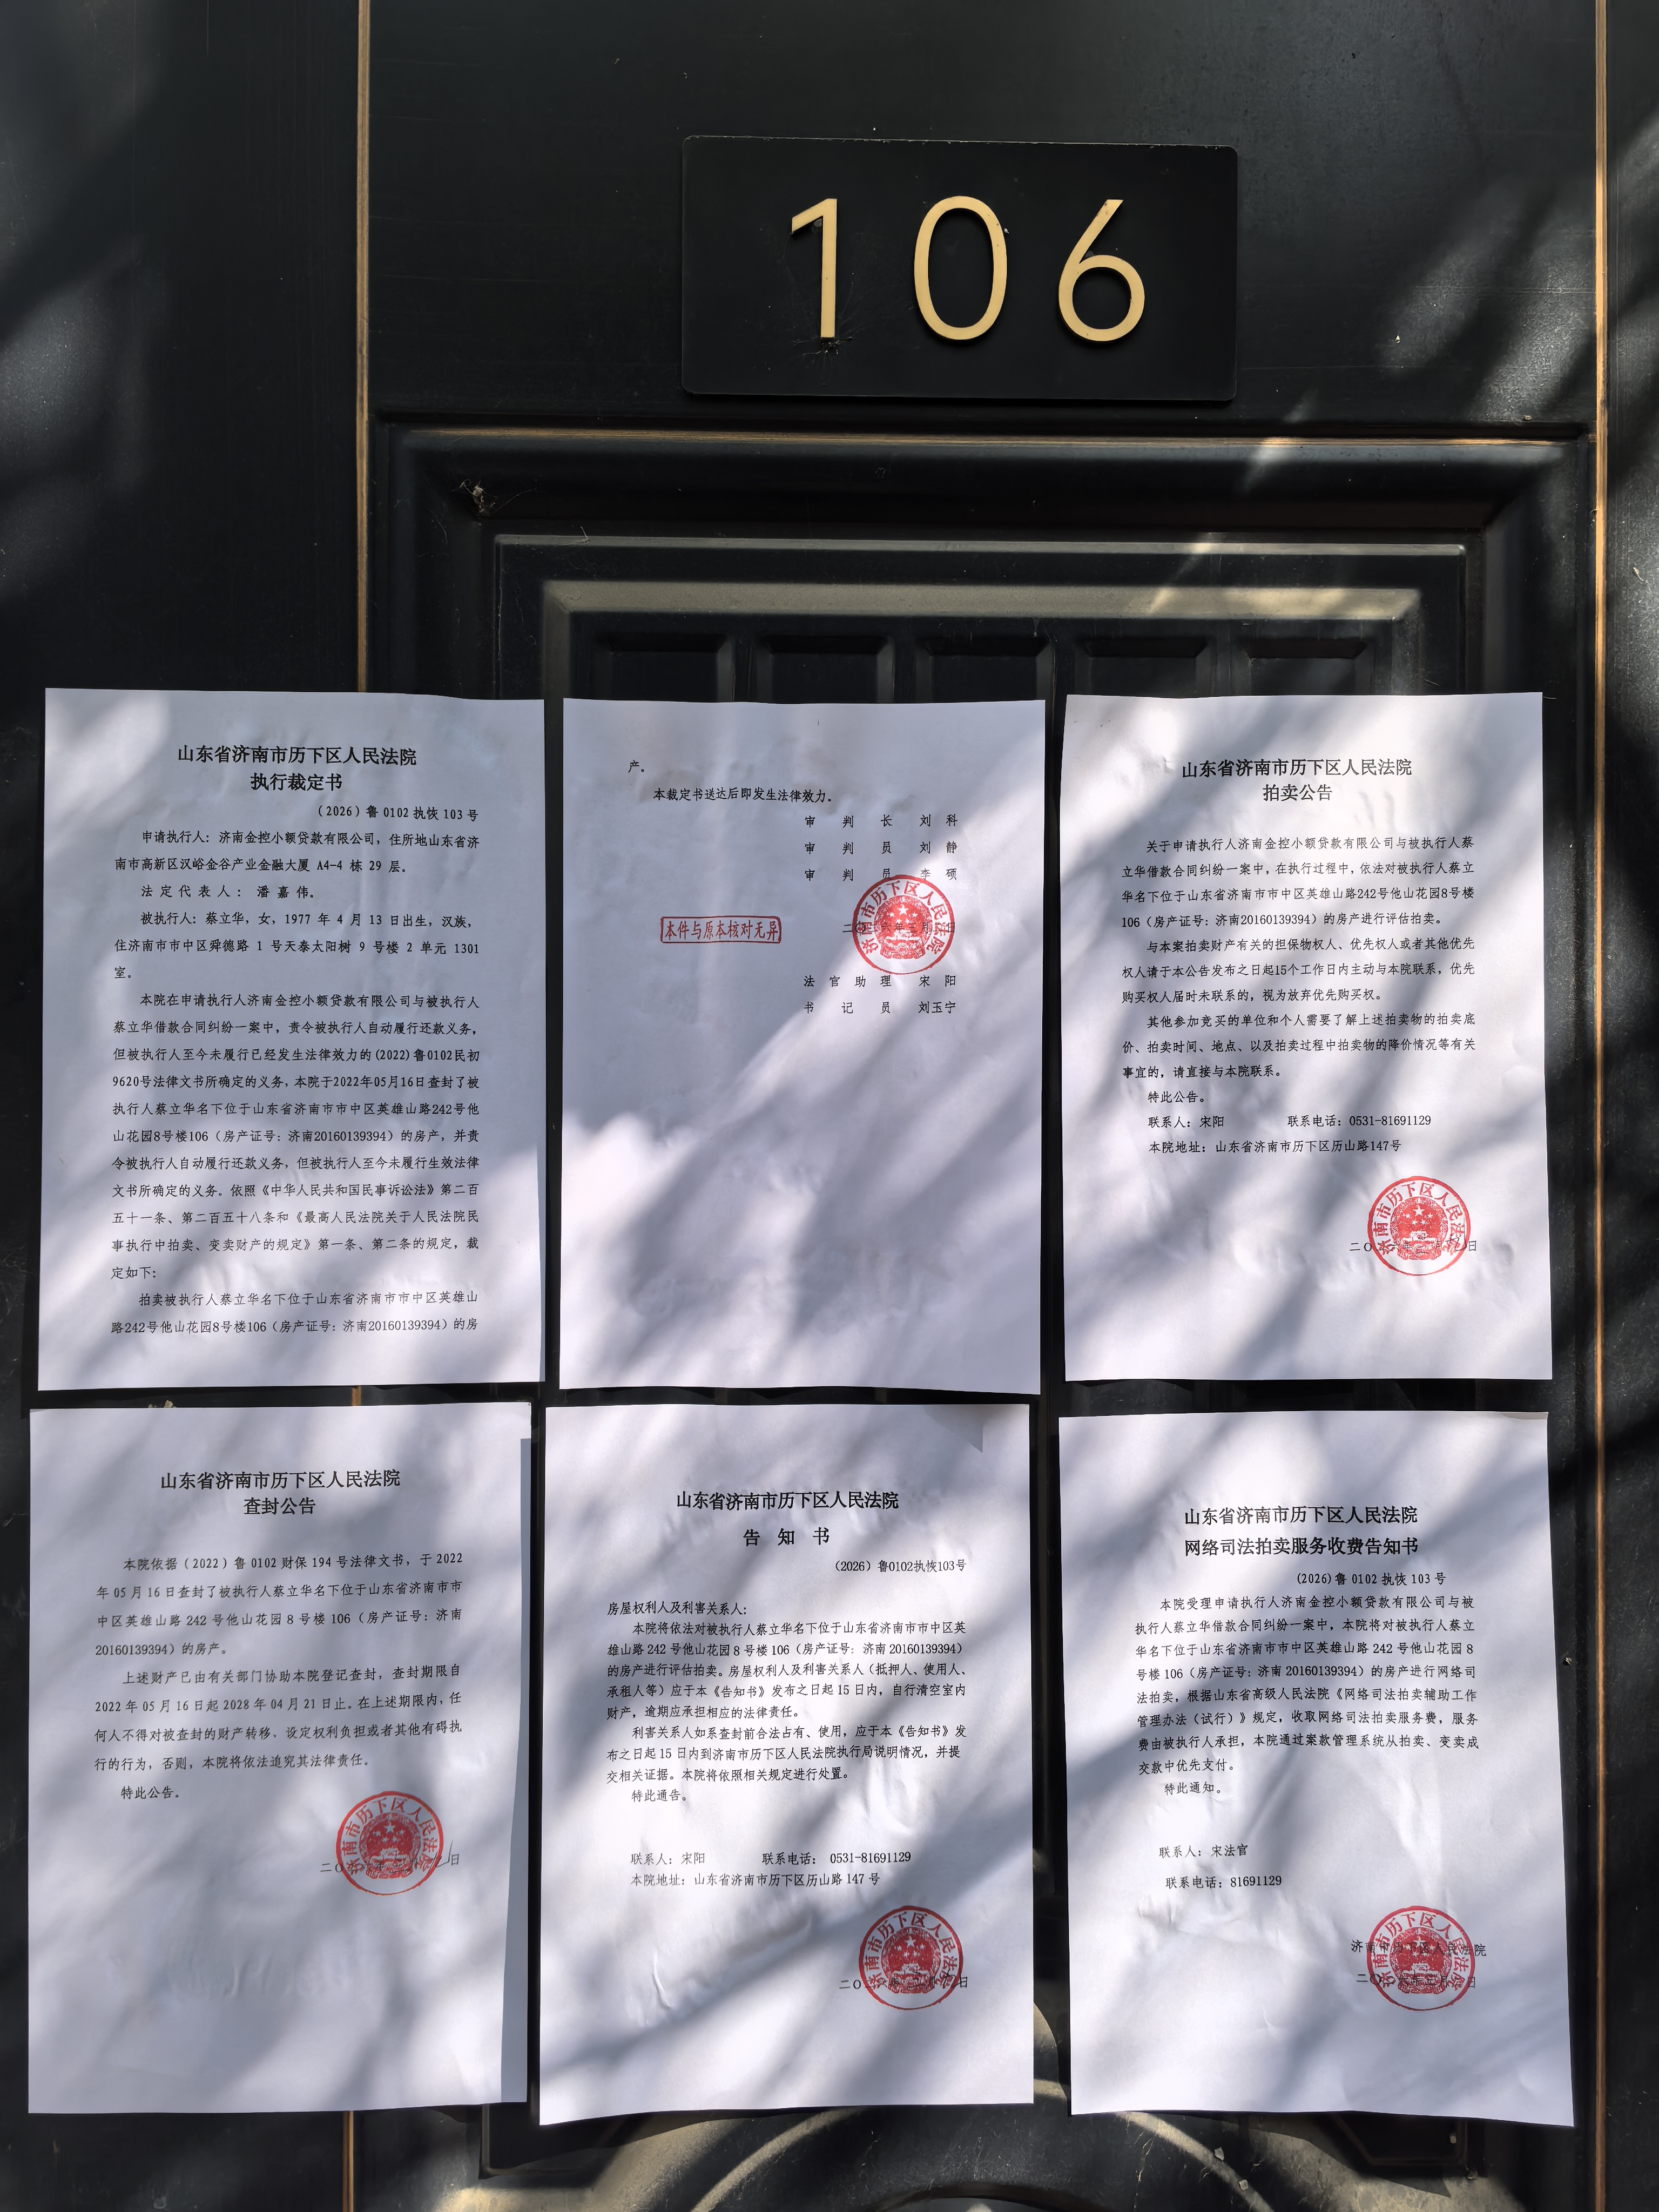 106
山东省济南市历下区人民法院
执行裁定书
（2026）鲁 0102 执恢 103 号
申请执行人：济南金控小额贷款有限公司，住所地山东省济
南市高新区汉峪金谷产业金融大厦 A4-4 栋 29 层。
法定代表人：潘嘉伟。
被执行人：蔡立华，女，1977 年 4 月 13 日出生，汉族，
住济南市市中区舜德路 1 号天泰太阳树 9 号楼 2 单元 1301
室。
本院在申请执行人济南金控小额贷款有限公司与被执行人
蔡立华借款合同纠纷一案中，责令被执行人自动履行还款义务，
但被执行人至今未履行已经发生法律效力的(2022)鲁0102民初
9620号法律文书所确定的义务，本院于2022年05月16日查封了被
执行人蔡立华名下位于山东省济南市市中区英雄山路242号他
山花园8号楼106（房产证号：济南20160139394）的房产，并责
令被执行人自动履行还款义务，但被执行人至今未履行生效法律
文书所确定的义务。依照《中华人民共和国民事诉讼法》第二百
五十一条、第二百五十八条和《最高人民法院关于人民法院民
事执行中拍卖、变卖财产的规定》第一条、第二条的规定，裁
定如下：
拍卖被执行人蔡立华名下位于山东省济南市市中区英雄山
路242号他山花园8号楼106（房产证号：济南20160139394）的房
产。
本裁定书送达后即发生法律效力。
审 判 长 刘 科
审 判 员 刘 静
审 判 员 李 硕
本件与原本核对无异
济南市历下区人民法院
法 官 助 理 宋 阳
书 记 员 刘玉宁
山东省济南市历下区人民法院
拍卖公告
关于申请执行人济南金控小额贷款有限公司与被执行人蔡
立华借款合同纠纷一案中，在执行过程中，依法对被执行人蔡立
华名下位于山东省济南市市中区英雄山路242号他山花园8号楼
106（房产证号：济南20160139394）的房产进行评估拍卖。
与本案拍卖财产有关的担保物权人、优先权人或者其他优先
权人请于本公告发布之日起15个工作日内主动与本院联系，优先
购买权人届时未联系的，视为放弃优先购买权。
其他参加竞买的单位和个人需要了解上述拍卖物的拍卖底
价、拍卖时间、地点、以及拍卖过程中拍卖物的降价情况等有关
事宜的，请直接与本院联系。
特此公告。
联系人：宋阳 联系电话：0531-81691129
本院地址：山东省济南市历下区历山路147号
济南市历下区人民法院
山东省济南市历下区人民法院
查封公告
本院依据（2022）鲁 0102 财保 194 号法律文书，于 2022
年 05 月 16 日查封了被执行人蔡立华名下位于山东省济南市市
中区英雄山路 242 号他山花园 8 号楼 106（房产证号：济南
20160139394）的房产。
上述财产已由有关部门协助本院登记查封，查封期限自
2022 年 05 月 16 日起 2028 年 04 月 21 日止。在上述期限内，任
何人不得对被查封的财产转移、设定权利负担或者其他有碍执
行的行为，否则，本院将依法追究其法律责任。
特此公告。
济南市历下区人民法院
山东省济南市历下区人民法院
告 知 书
（2026）鲁0102执恢103号
房屋权利人及利害关系人：
本院将依法对被执行人蔡立华名下位于山东省济南市市中区英
雄山路 242 号他山花园 8 号楼 106（房产证号：济南 20160139394）
的房产进行评估拍卖。房屋权利人及利害关系人（抵押人、使用人、
承租人等）应于本《告知书》发布之日起 15 日内，自行清空室内
财产，逾期应承担相应的法律责任。
利害关系人如系查封前合法占有、使用，应于本《告知书》发
布之日起 15 日内到济南市历下区人民法院执行局说明情况，并提
交相关证据。本院将依照相关规定进行处置。
特此通告。
联系人：宋阳 联系电话： 0531-81691129
本院地址：山东省济南市历下区历山路 147 号
济南市历下区人民法院
山东省济南市历下区人民法院
网络司法拍卖服务收费告知书
(2026)鲁 0102 执恢 103 号
本院受理申请执行人济南金控小额贷款有限公司与被
执行人蔡立华借款合同纠纷一案中，本院将对被执行人蔡立
华名下位于山东省济南市市中区英雄山路 242 号他山花园 8
号楼 106（房产证号：济南 20160139394）的房产进行网络司
法拍卖，根据山东省高级人民法院《网络司法拍卖辅助工作
管理办法（试行）》规定，收取网络司法拍卖服务费，服务
费由被执行人承担，本院通过案款管理系统从拍卖、变卖成
交款中优先支付。
特此通知。
联系人：宋法官
联系电话：81691129
济南市历下区人民法院